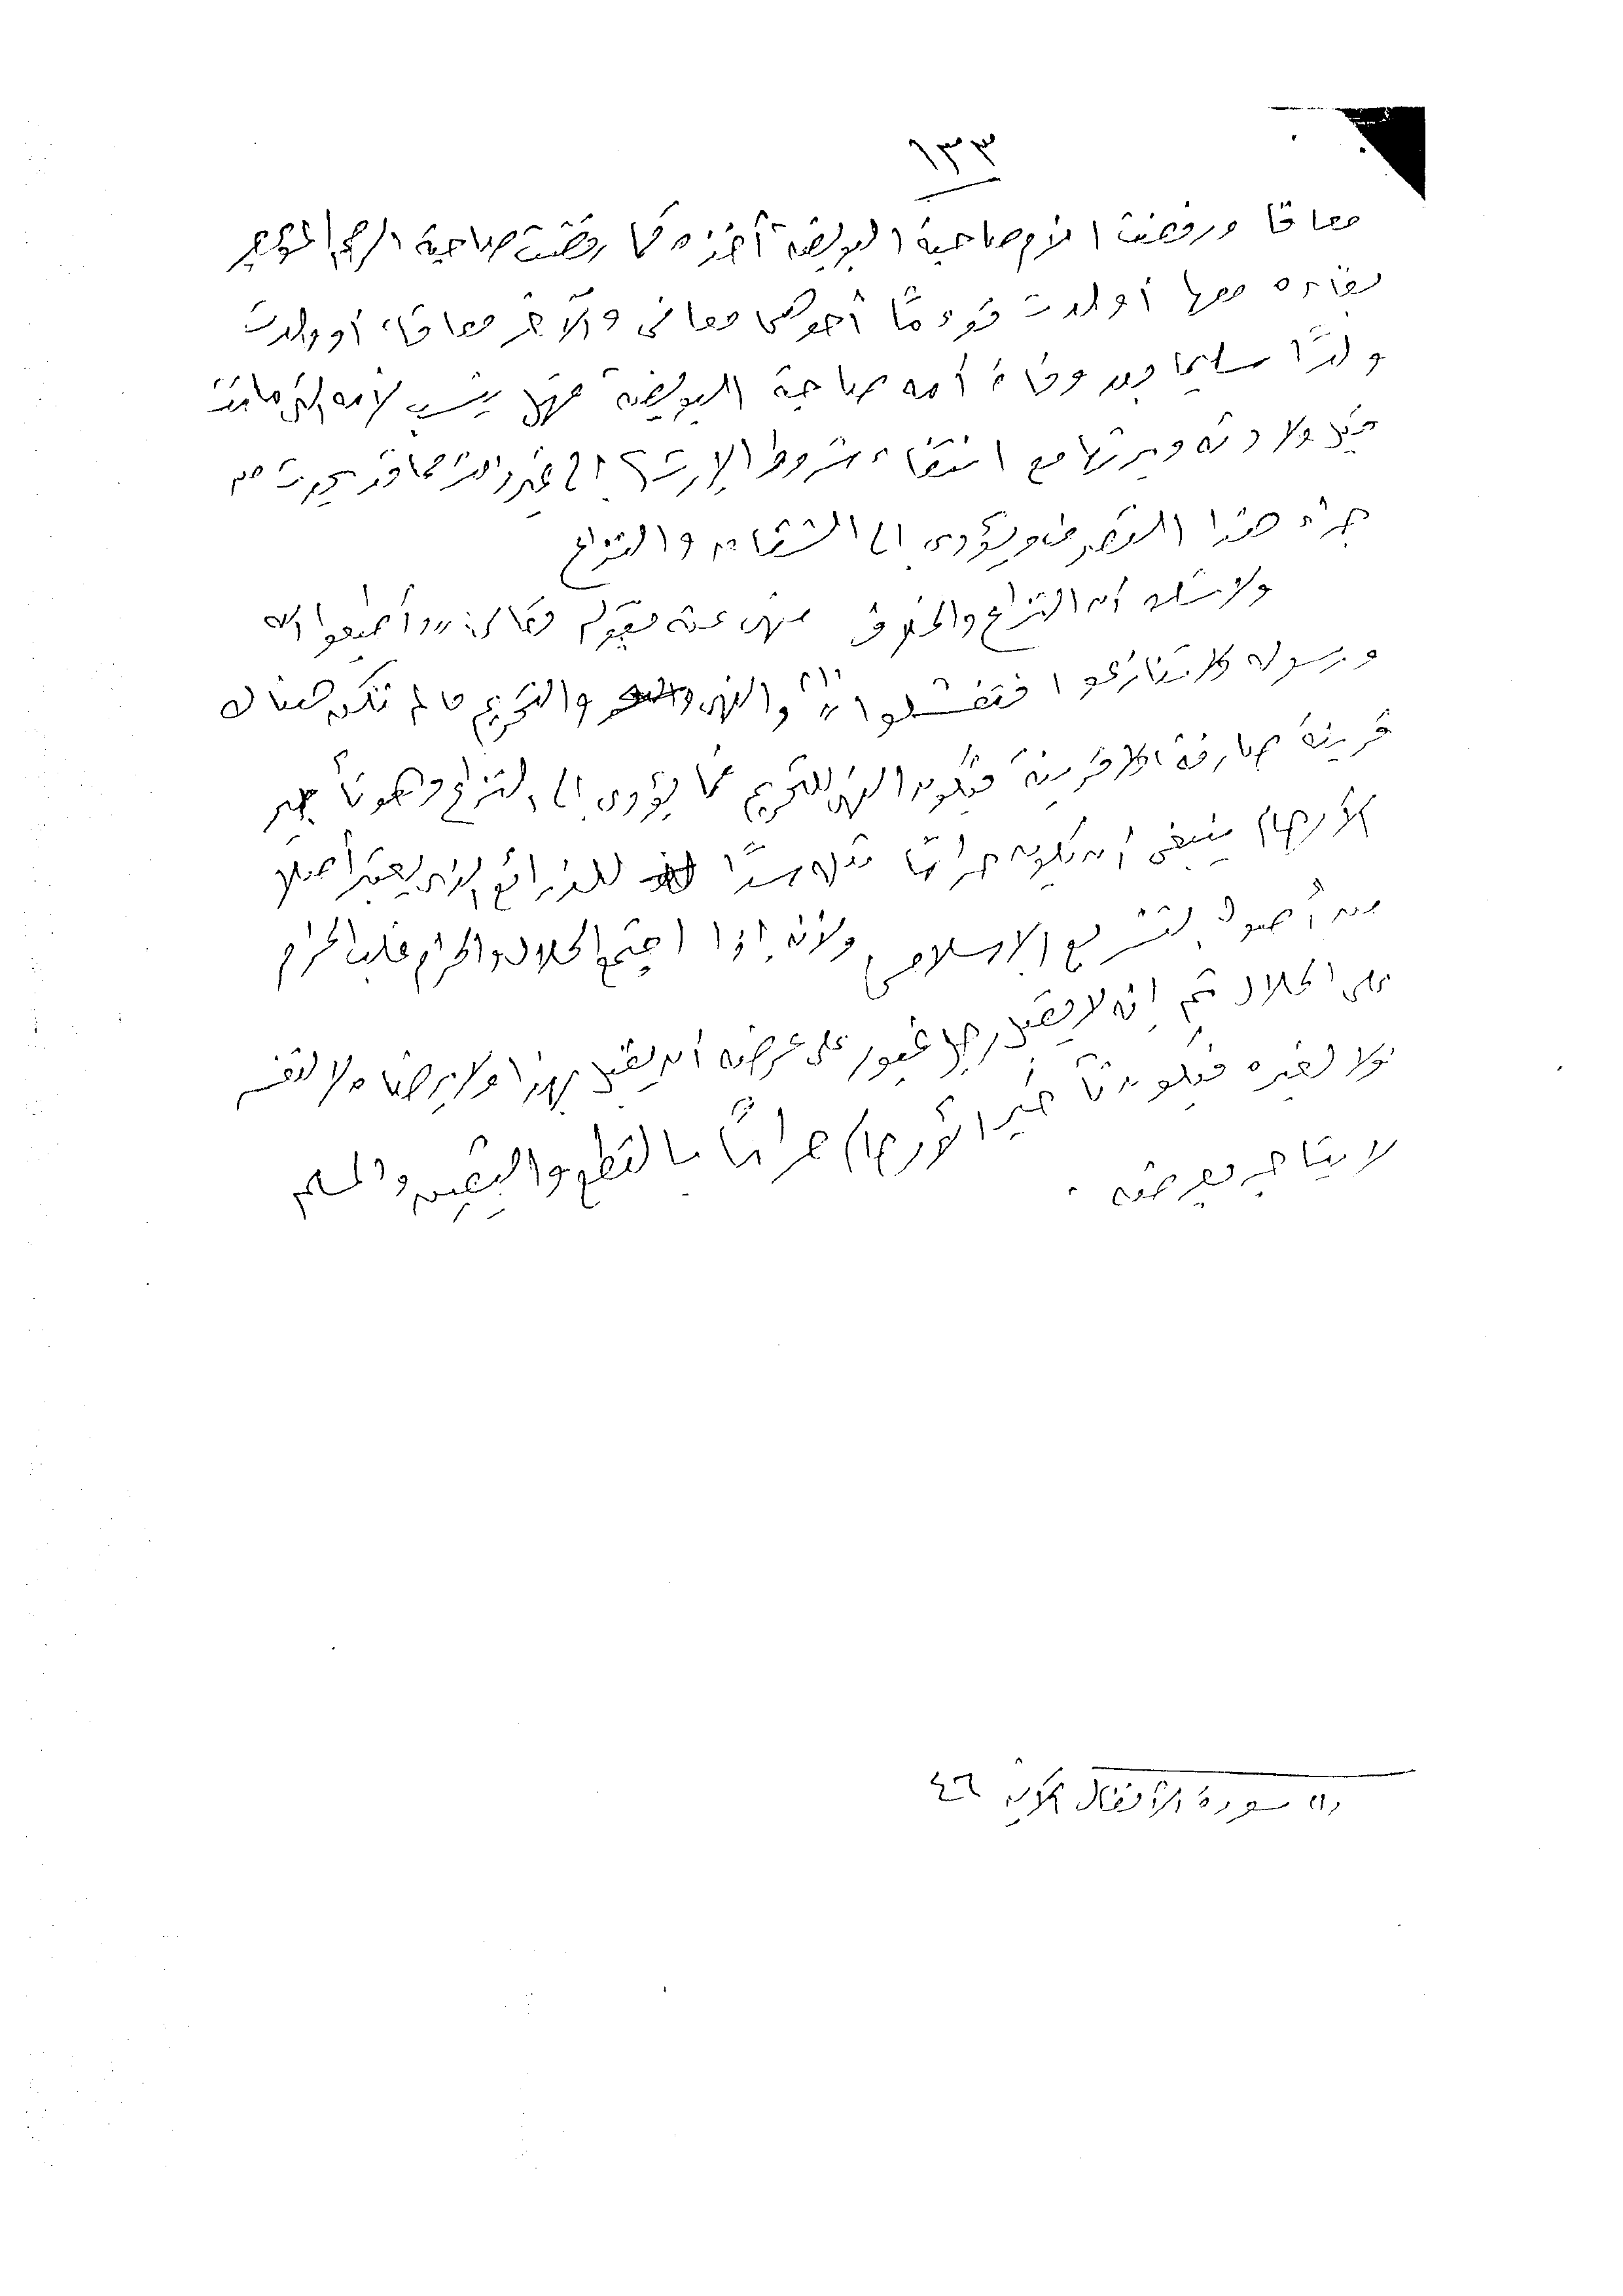 ١٣٣
معاقا ورفضت الأم صاحبة البويضة أخذه كما رفضت صاحبة الرحم المؤجر
بقاءه معها أو ولدت توءمًا أحدهما معافى والآخر معاقا، أو ولدت
ولدًا سليما بعد وفاة أمه صاحبة البويضة فهل ينسب لأمه التى ماتت
قبل ولادته ويرثها مع انتفاء شروط الإرث؟ إلى غير ذلك مما قد يحدث من
جراء هذا التصرف ويؤدى إلى الشقاق والنزاع
ولا شك أن النزاع والخلاف منهى عنه بقوله تعالى: "وأطيعوا الله
ورسوله ولا تنازعوا فتفشلوا" (١) والنهى والتحريم ما لم تكن هناك
قرينة صارفة، ولا قرينة فيكون النهى للتحريم فما يؤدى إلى النزاع وهو تأجير
الأرحام ينبغى أن يكون حرامًا مثله سدًا للذرائع الذى يعتبر أصلا
من أصول التشريع الإسلامى ولأنه إذا اجتمع الحلال والحرام غلب الحرام
على الحلال ثم إنه لا يقبل رجل غيور على عرضه أن يقبل بهذا ولا يرضاه لا لنفسه
ولا لغيره فيكون تأجير الأرحام حرامًا بالقطع واليقين والمسلم
لا يتاجر بعرضه .
(١) سورة الأنفال الآية ٤٦